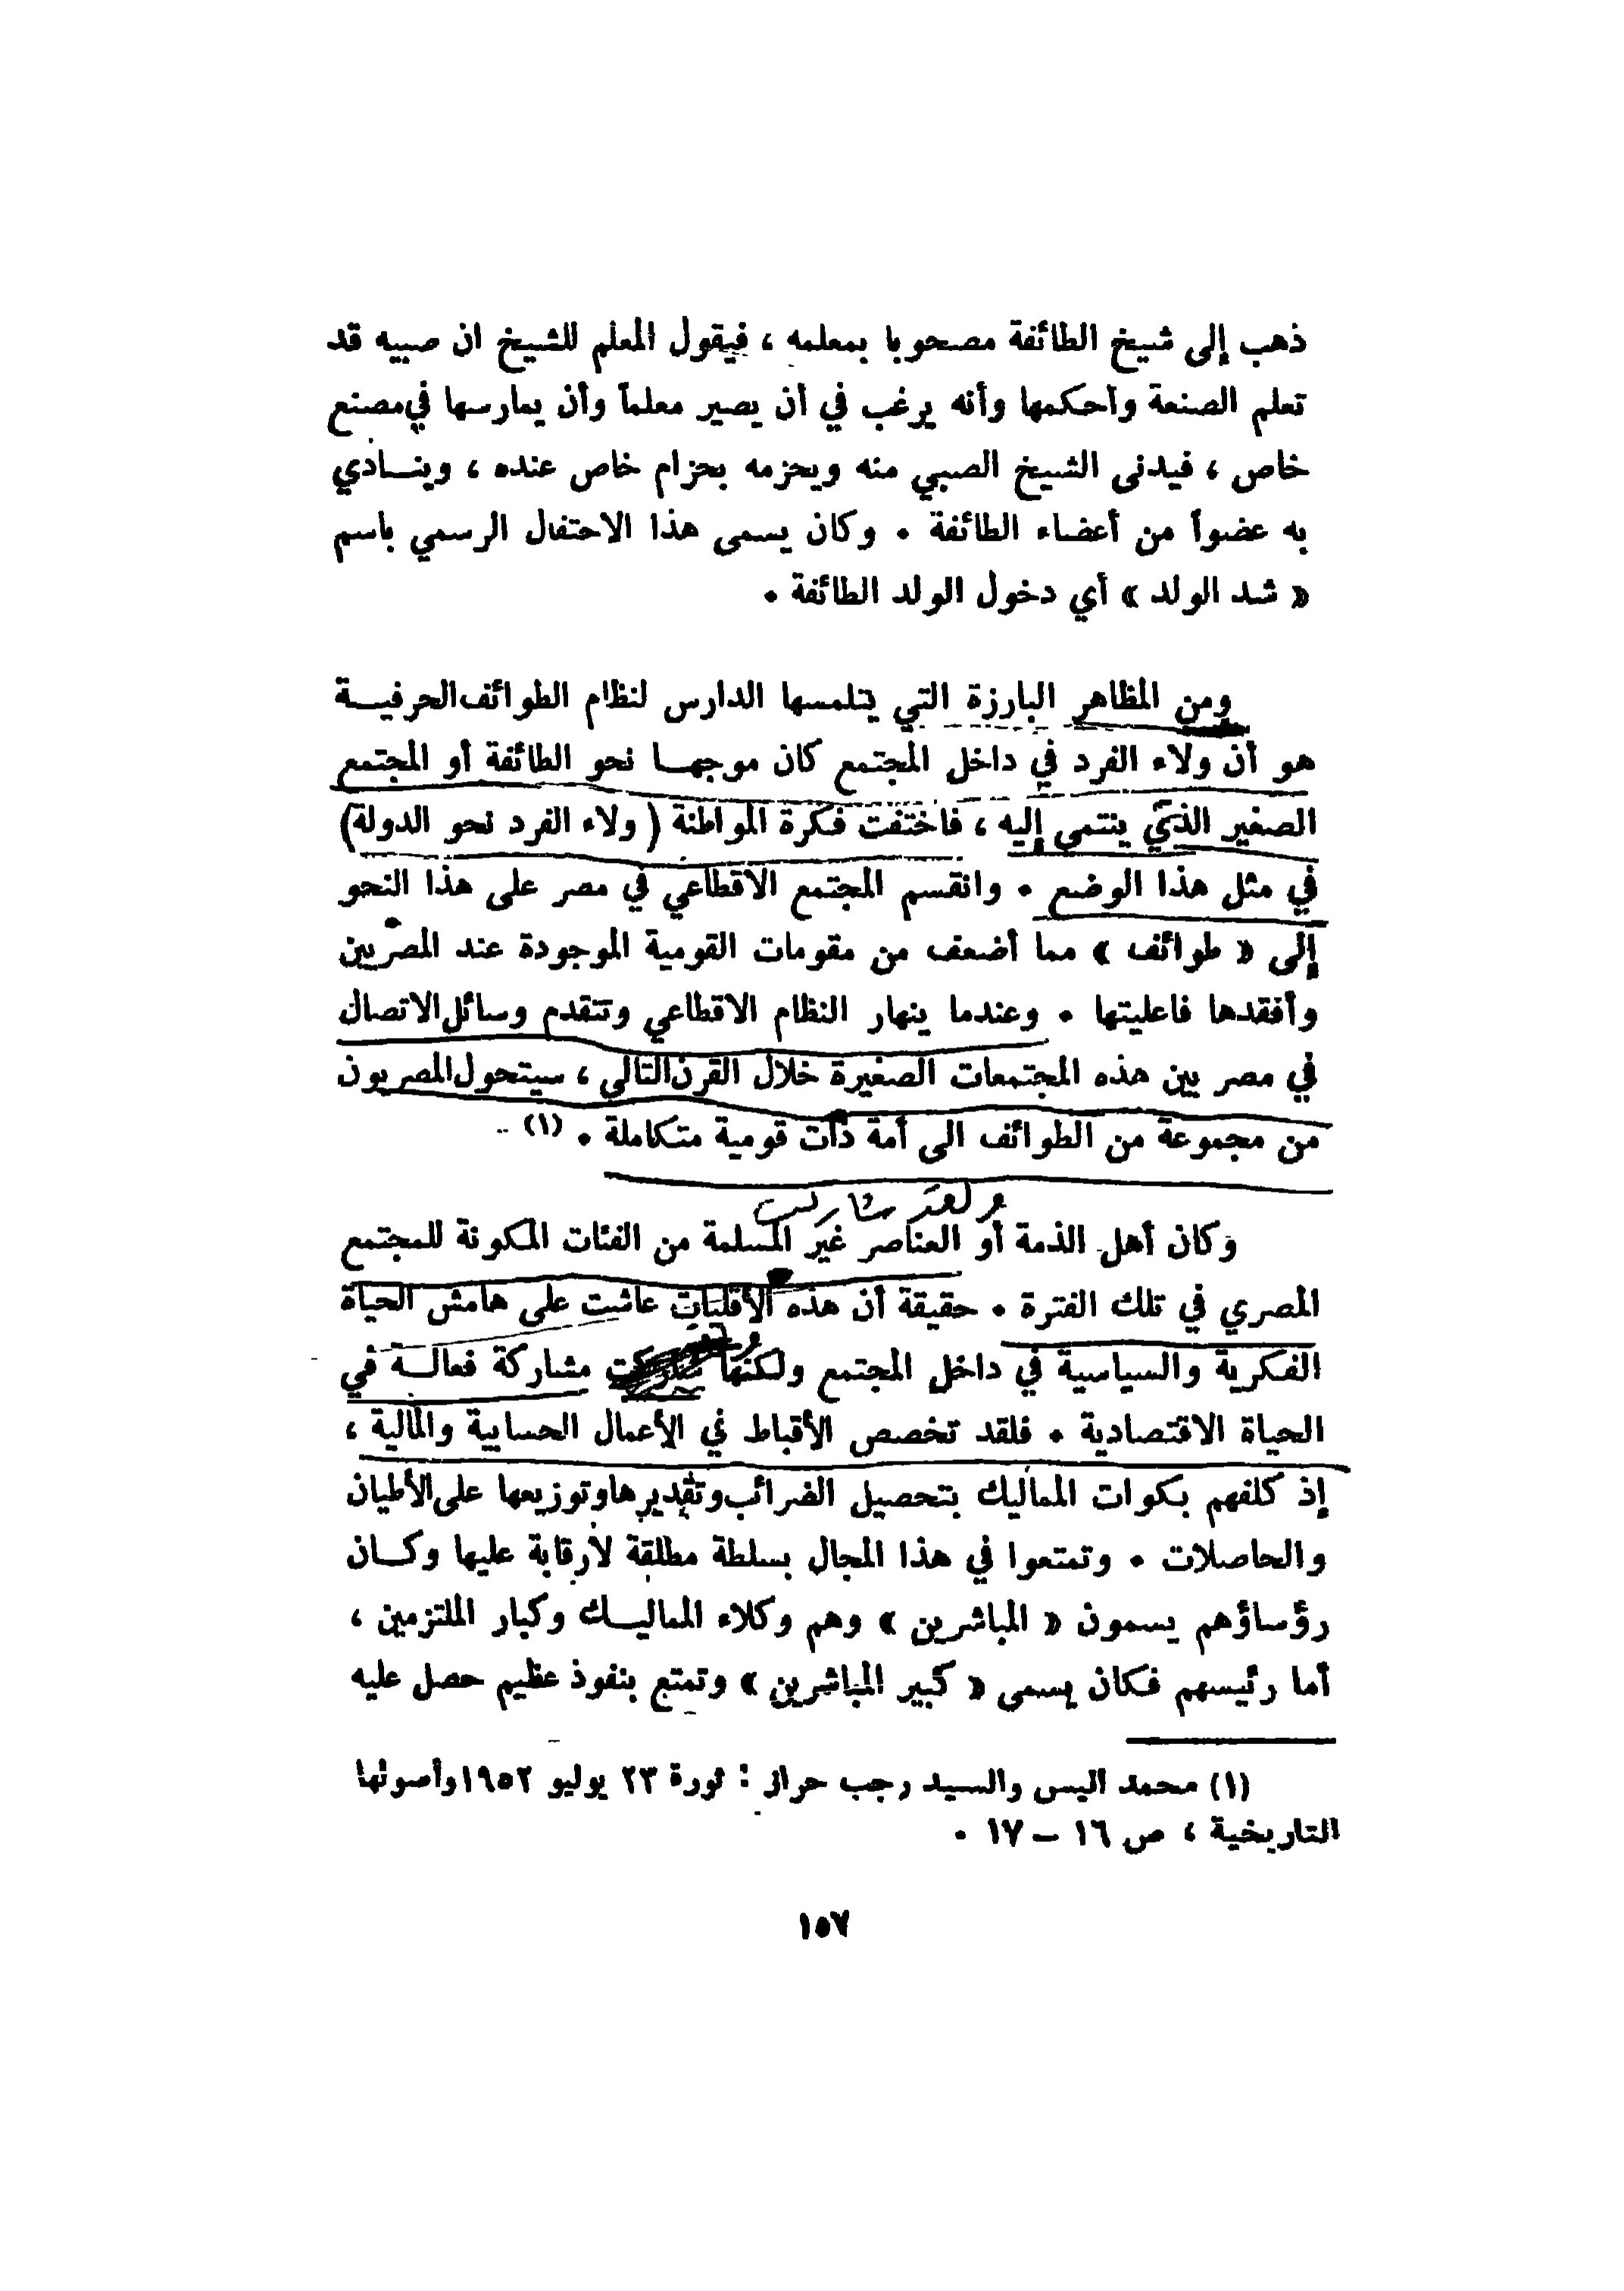 ذهب إلى شيخ الطائفة مصحوبا بمعلمه ، فيقول المعلم للشيخ ان صبيه قد
تعلم الصنعة وأحكمها وأنه يرغب في أن يصير معلماً وأن يمارسها في مصنع
خاص ، فيدنى الشيخ الصبي منه ويحزمه بحزام خاص عنده ، وينــادي
به عضواً من أعضاء الطائفة . وكان يسمى هذا الاحتفال الرسمي باسم
« شد الولد » أي دخول الولد الطائفة .
ومن المظاهر البارزة التي يتلمسها الدارس لنظام الطوائف الحرفيــة
هو أن ولاء الفرد في داخل المجتمع كان موجهــا نحو الطائفة أو المجتمع
الصغير الذي ينتمي إليه ، فاختفت فكرة المواطنة ( ولاء الفرد نحو الدولة )
في مثل هذا الوضع . وانقسم المجتمع الاقطاعي في مصر على هذا النحو
إلى « طوائف » مما أضعف من مقومات القومية الموجودة عند المصريين
وأفقدها فاعليتها . وعندما ينهار النظام الاقطاعي وتتقدم وسائل الاتصال
في مصر بين هذه المجتمعات الصغيرة خلال القرن التالي ، سيتحول المصريون
من مجموعة من الطوائف الى أمة ذات قومية متكاملة . (١)
ولقد شاركت
وكان أهل الذمة أو العناصر غير المسلمة من الفئات المكونة للمجتمع
المصري في تلك الفترة . حقيقة أن هذه الأقليات عاشت على هامش الحياة
الفكرية والسياسية في داخل المجتمع ولكنها مشاركة فعالــة في
الحياة الاقتصادية . فلقد تخصص الأقباط في الأعمال الحسابية والمالية ،
إذ كلفهم بكوات المماليك بتحصيل الضرائب وتقديرها وتوزيعها على الأطيان
والحاصلات . وتمتعوا في هذا المجال بسلطة مطلقة لا رقابة عليها وكــان
رؤساؤهم يسمون « المباشرين » وهم وكلاء المماليــك وكبار الملتزمين ،
أما رئيسهم فكان يسمى « كبير المباشرين » وتمتع بنفوذ عظيم حصل عليه
(١) محمد انيس والسيد رجب حراز : ثورة ٢٣ يوليو ١٩٥٢ وأصولها
التاريخية ، ص ١٦ – ١٧ .
١٥٧